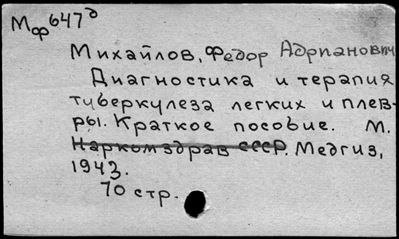 Мф647д
Михайлов, Федор Адрианович
Диагностика и терапия
туберкулеза легких и плев-
ры. Краткое пособие. М.
Наркомздрав СССР. Медгиз,
1943.
70 стр.